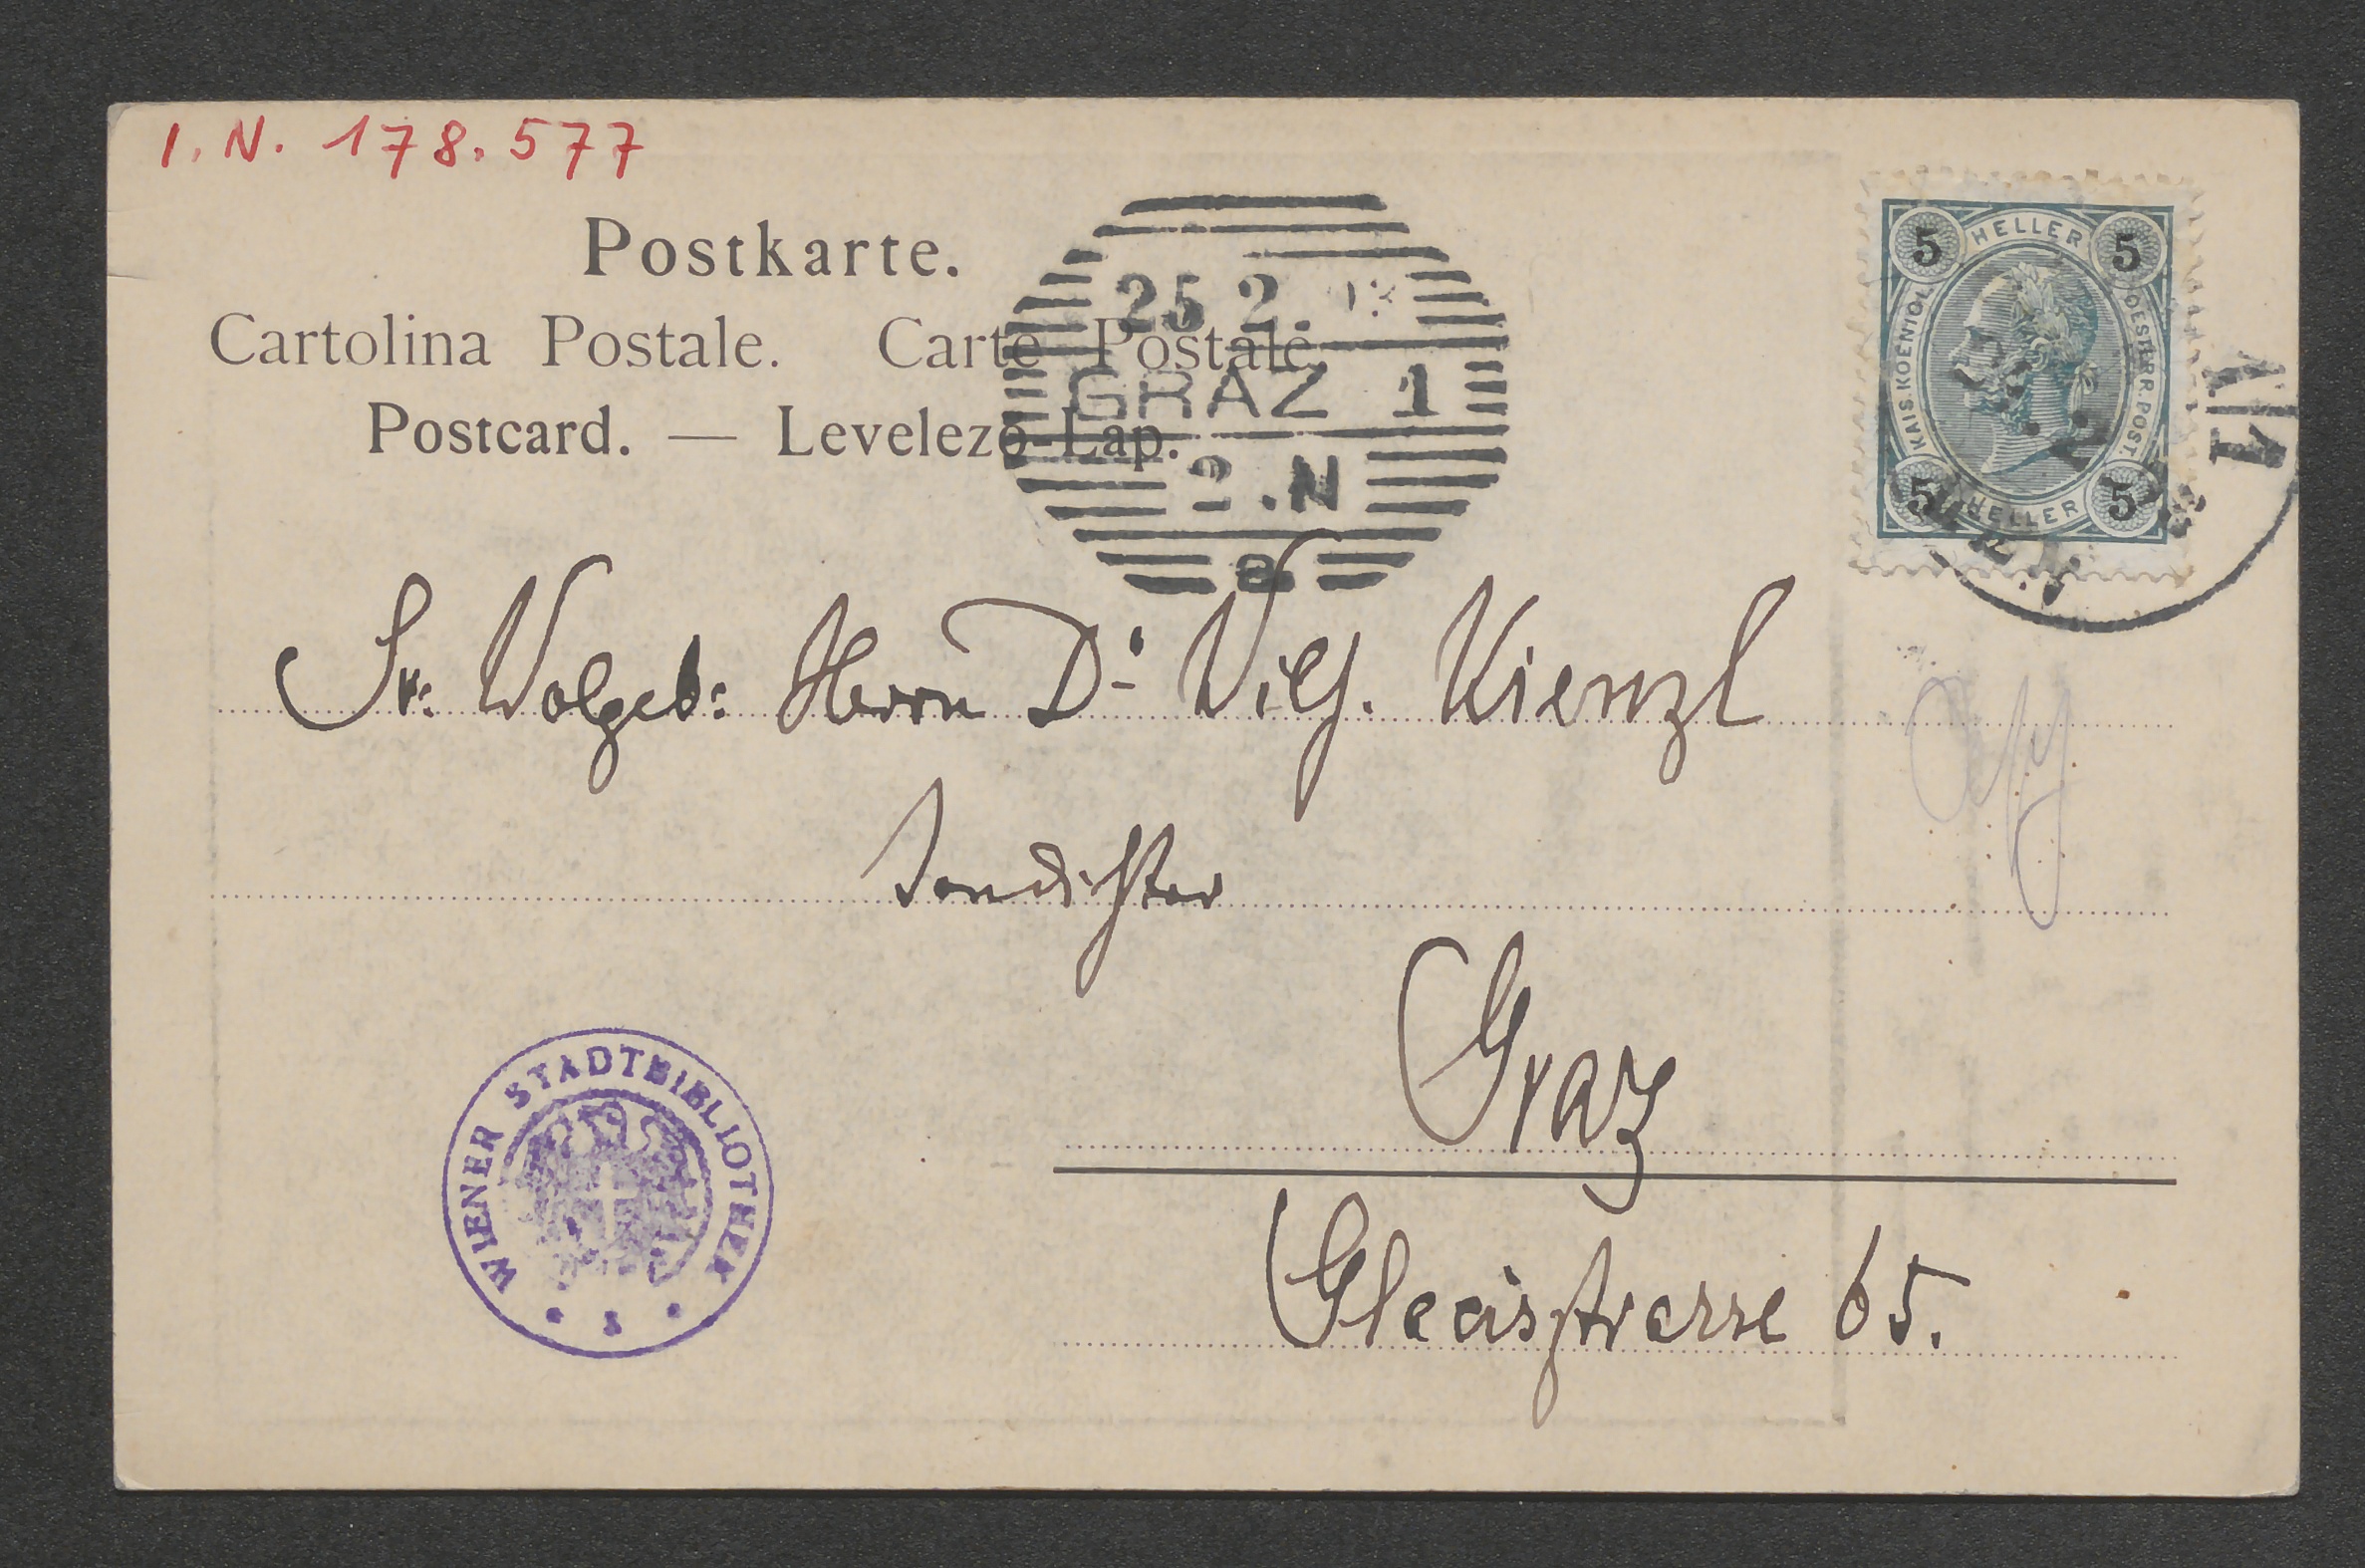 I. N. 178.577
Postkarte.
Cartolina Postale. Carte Postale.
Postcard. — Levelező-Lap.
25 2.
GRAZ 1
.N
a
5 HELLER 5
KAIS. KOENIGL. OESTERR. POST.
5 HELLER 5
Sr: Wolgeb: Herrn Dr. Wilh. Kienzl
Tondichter
Graz
Glacisstrasse 65.
WIENER STADTBIBLIOTHEK